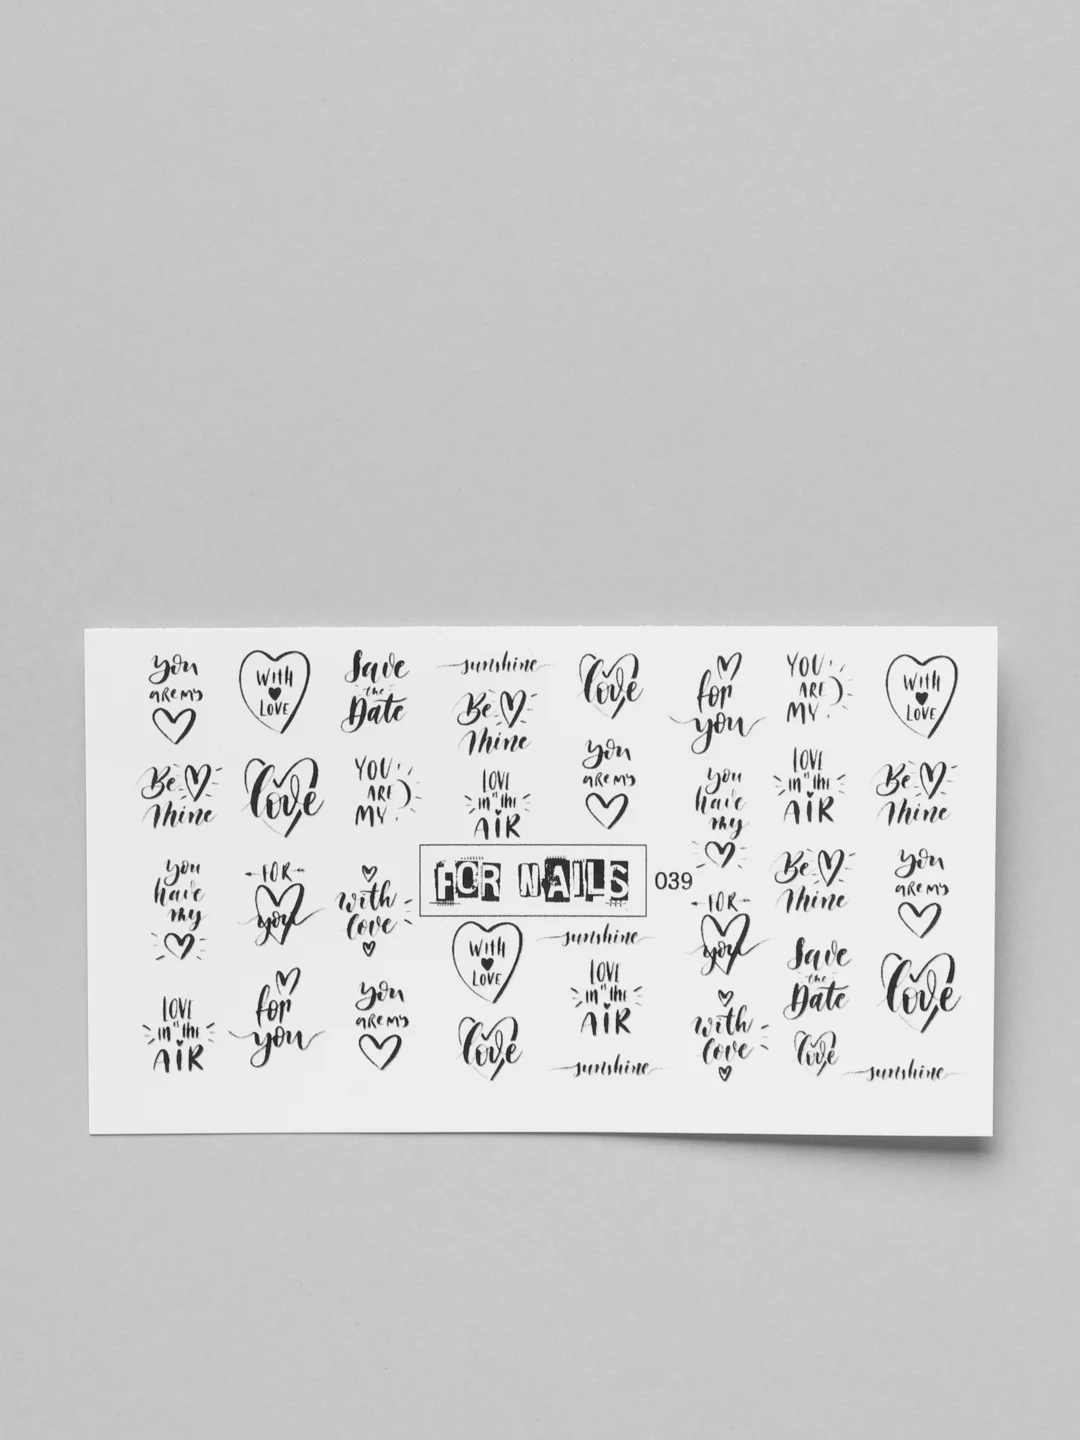 you
are my
With
LOVE
Save
the
Date
sunshine
Love
for
you
YOU
ARE
MY
With
LOVE
Be
Mine
Love
YOU
ARE
MY
Be
Mine
LOVE
in the
AIR
you
are my
you
have
my
LOVE
in the
AIR
Be
Mine
you
have
my
FOR
you
with
love
FOR NAILS
039
FOR
you
Be
Mine
you
are my
LOVE
in the
AIR
for
you
you
are my
With
LOVE
Love
sunshine
LOVE
in the
AIR
sunshine
with
love
Save
the
Date
Love
Love
sunshine